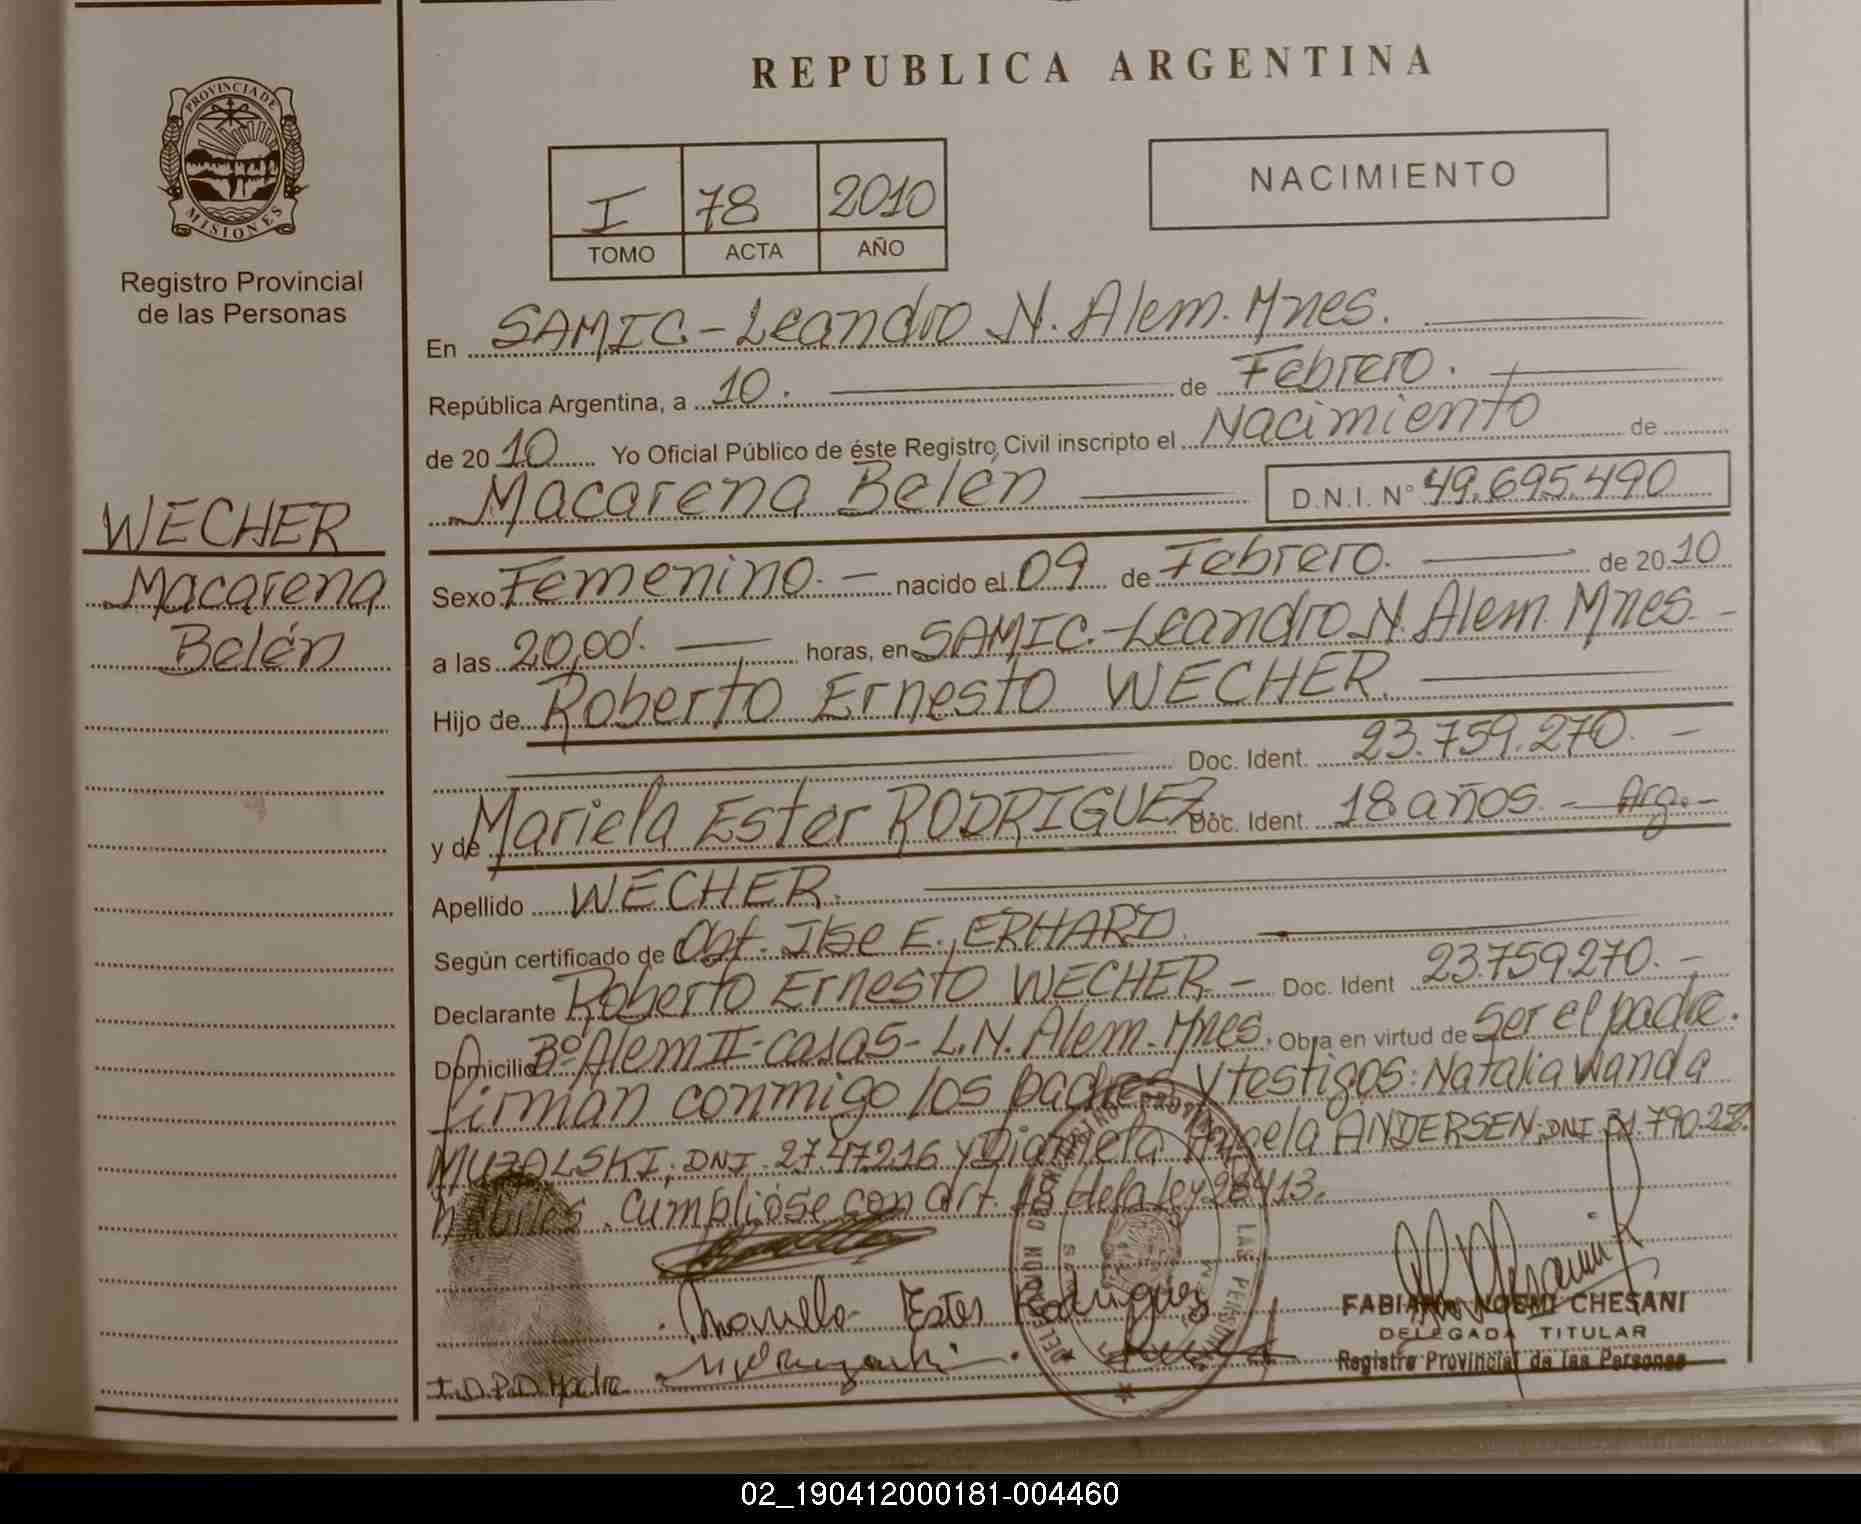 REPUBLICA ARGENTINA
PROVINCIA DE
MISIONES
Registro Provincial
de las Personas
I 78 2010
TOMO ACTA AÑO
NACIMIENTO
En SAMIC - Leandro N. Alem. Mnes.
República Argentina, a 10. de Febrero.
de 2010 Yo Oficial Público de éste Registro Civil inscripto el Nacimiento de
Macarena Belén D.N.I. N° 49.695.490
WECHER
Macarena
Belén
Sexo Femenino. - nacido el 09 de Febrero. de 2010
a las 20,00'. horas, en SAMIC. - Leandro N. Alem. Mnes. -
Hijo de Roberto Ernesto WECHER.
Doc. Ident. 23.759.270. -
y de Mariela Ester RODRIGUEZ. Doc. Ident. 18 años. - Arg. -
Apellido WECHER.
Según certificado de Obst. Ilse E. ERHARD.
Declarante Roberto Ernesto WECHER - Doc. Ident 23.759.270. -
Domicilio B° Alem II - casas - L.N. Alem. Mnes. Obra en virtud de Ser el padre.
firman conmigo los padres y testigos: Natalia Wanda
DNI. y Angela ANDERSEN, DNI
hábiles. Cumplióse con art. 18 de la ley
Ester Rodriguez
FABIANA NOEMI CHESANI
DELEGADA TITULAR
Registro Provincial de las Personas
I.D.P.D. Madre
02_190412000181-004460